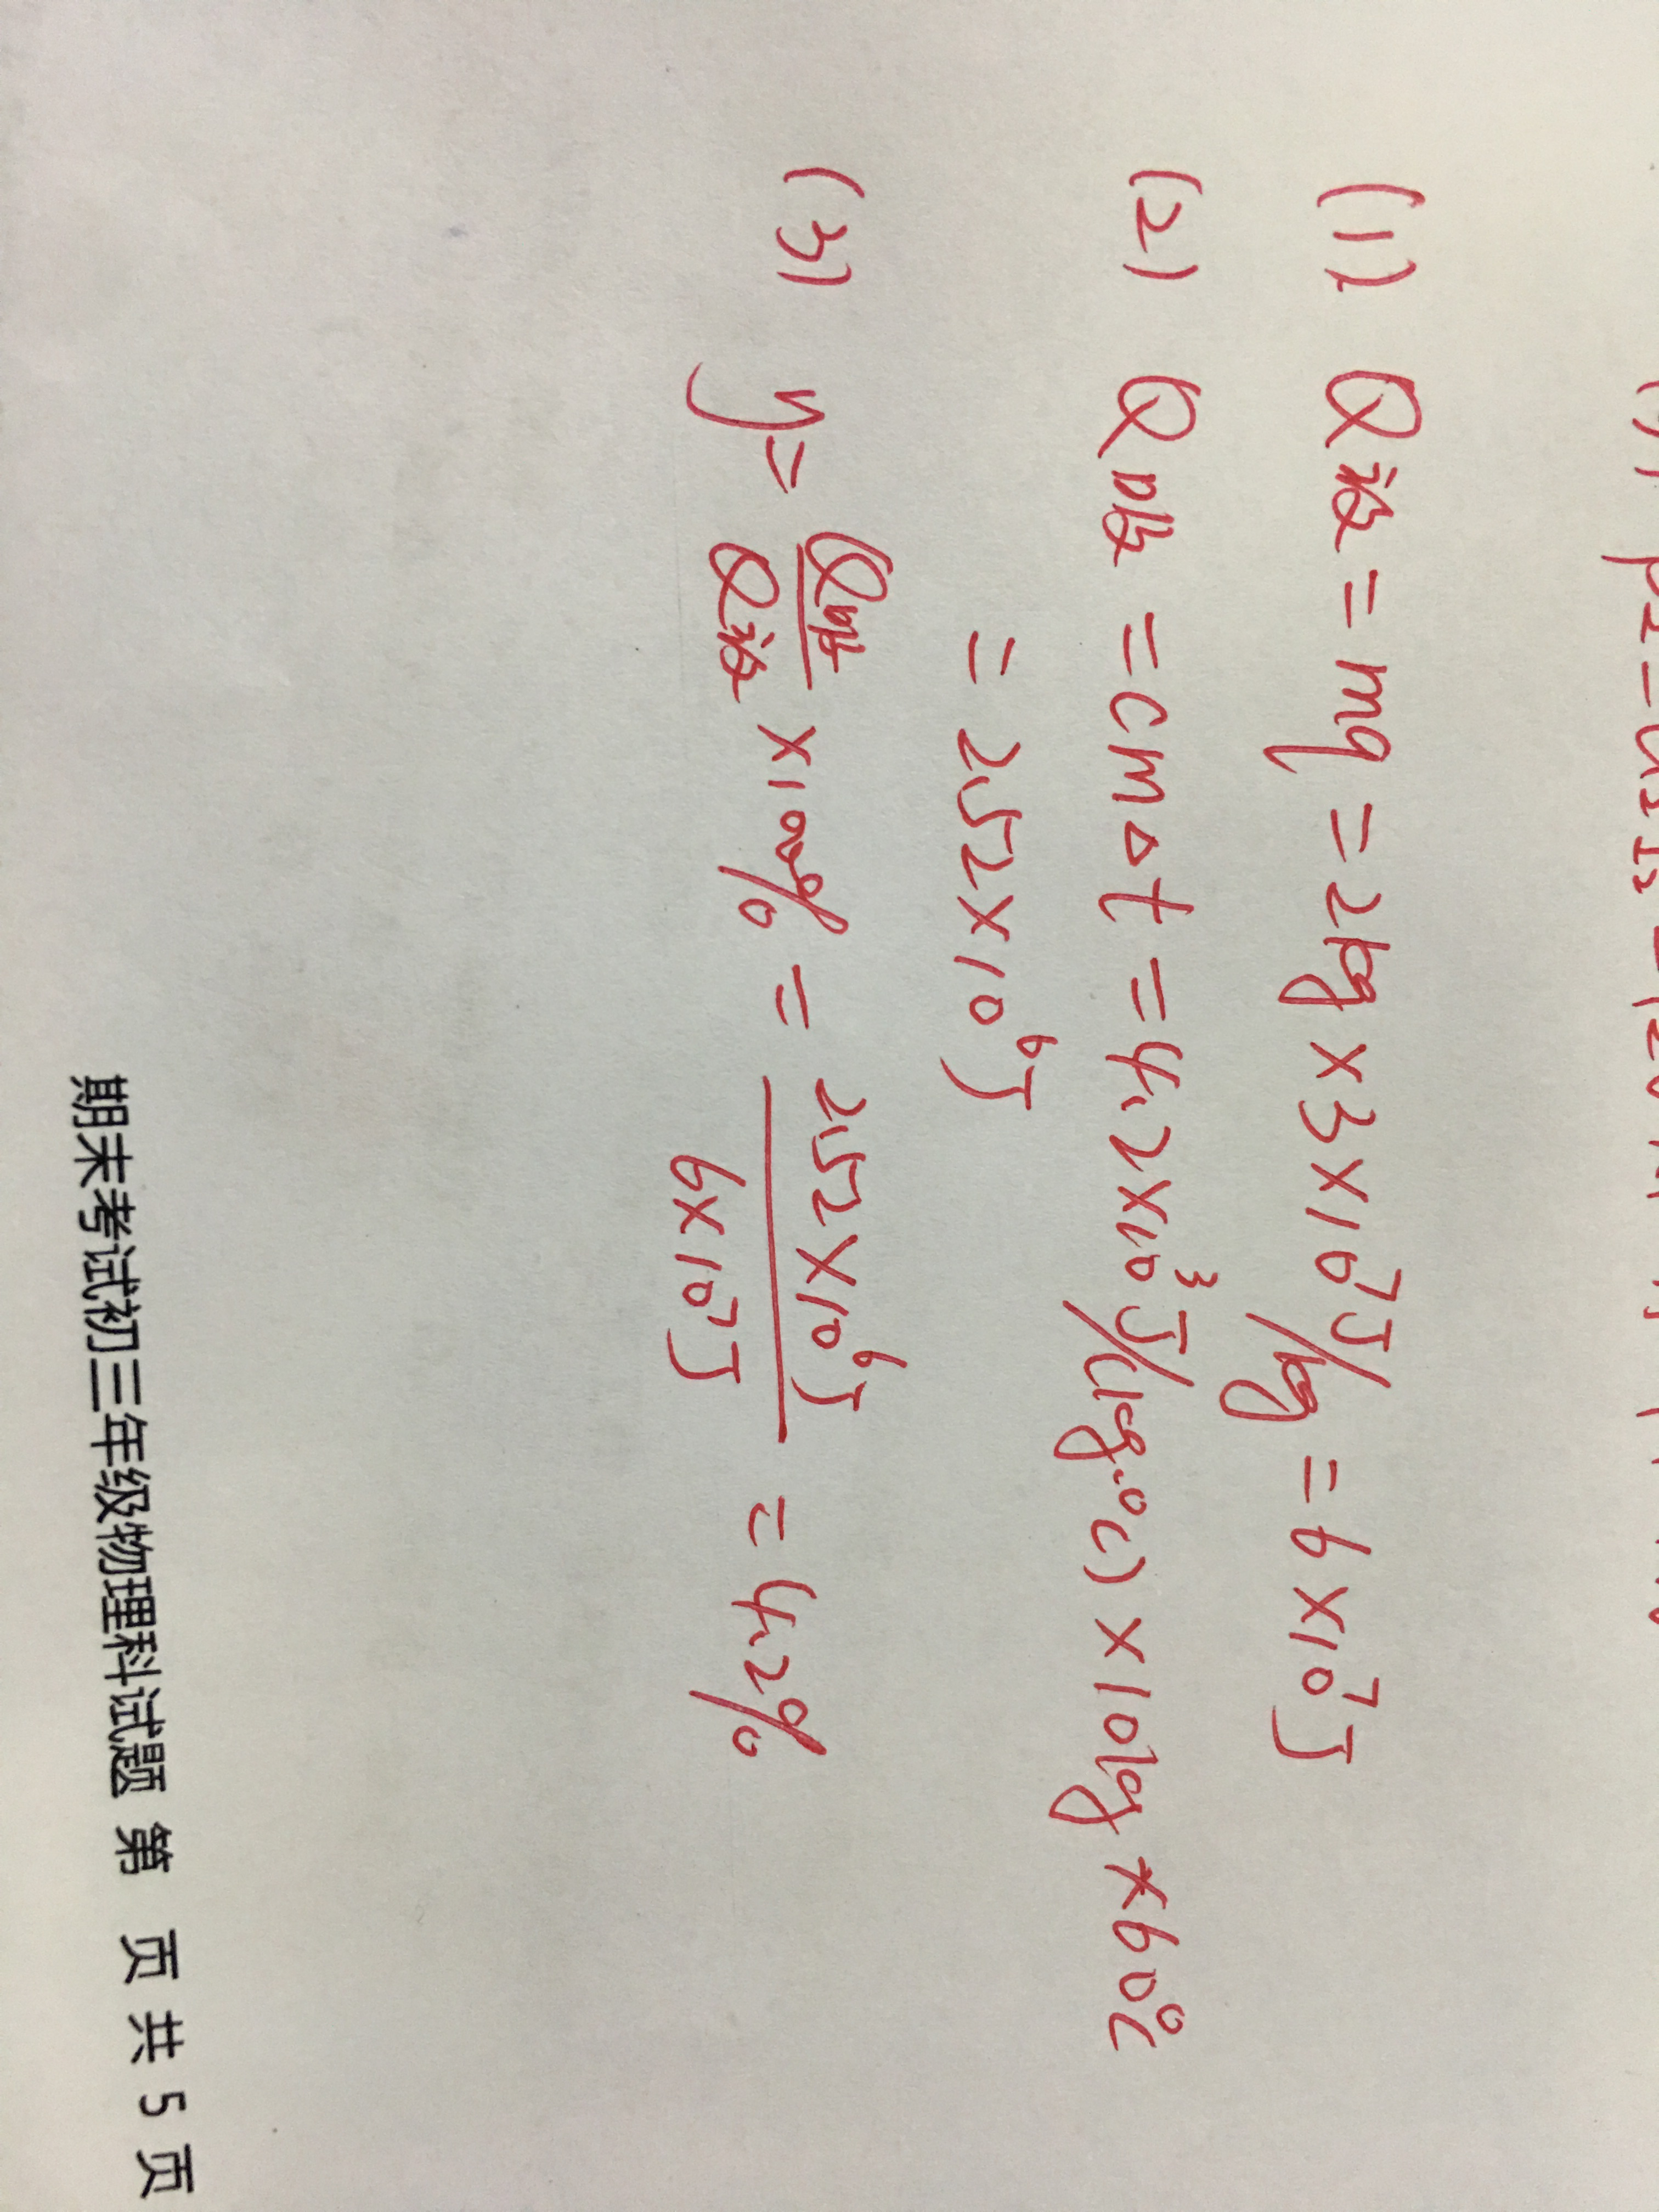 (1) Q放 = mq = 2kg × 3×10⁷J/kg = 6×10⁷J
(2) Q吸 = cm△t = 4.2×10³J/(kg·℃) × 10kg × 60℃
= 2.52×10⁶J
(3) η = Q吸/Q放 ×100% = 2.52×10⁶J/6×10⁷J = 4.2%
期末考试初三年级物理科斗试题 第 页 共 5 页